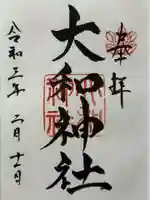 奉拝
大和神社
令和三年 二月 十一日